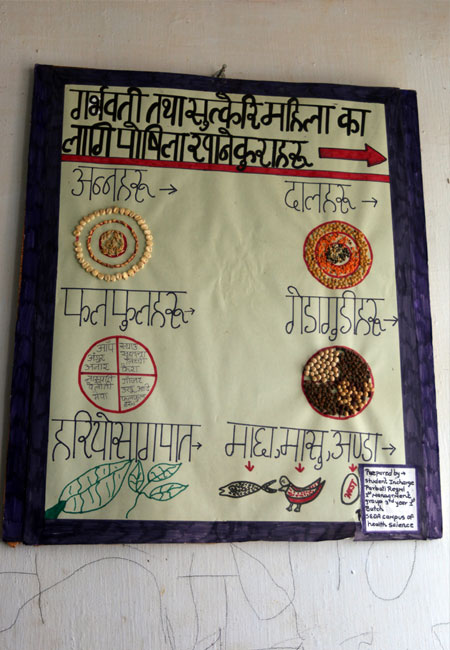 गर्भवती तथा सुत्केरी महिला का
लागि पोषिला खानेकुराहरू
अन्नहरू
दालहरू
फलफुलहरू
गेडागुडीहरू
हरियो सागपात
माछा, मासु, अण्डा
Prepared by
Student Incharge
Parbati Regmi
1st Management
group 3rd year 1st
Batch
SEDA campus of
health science